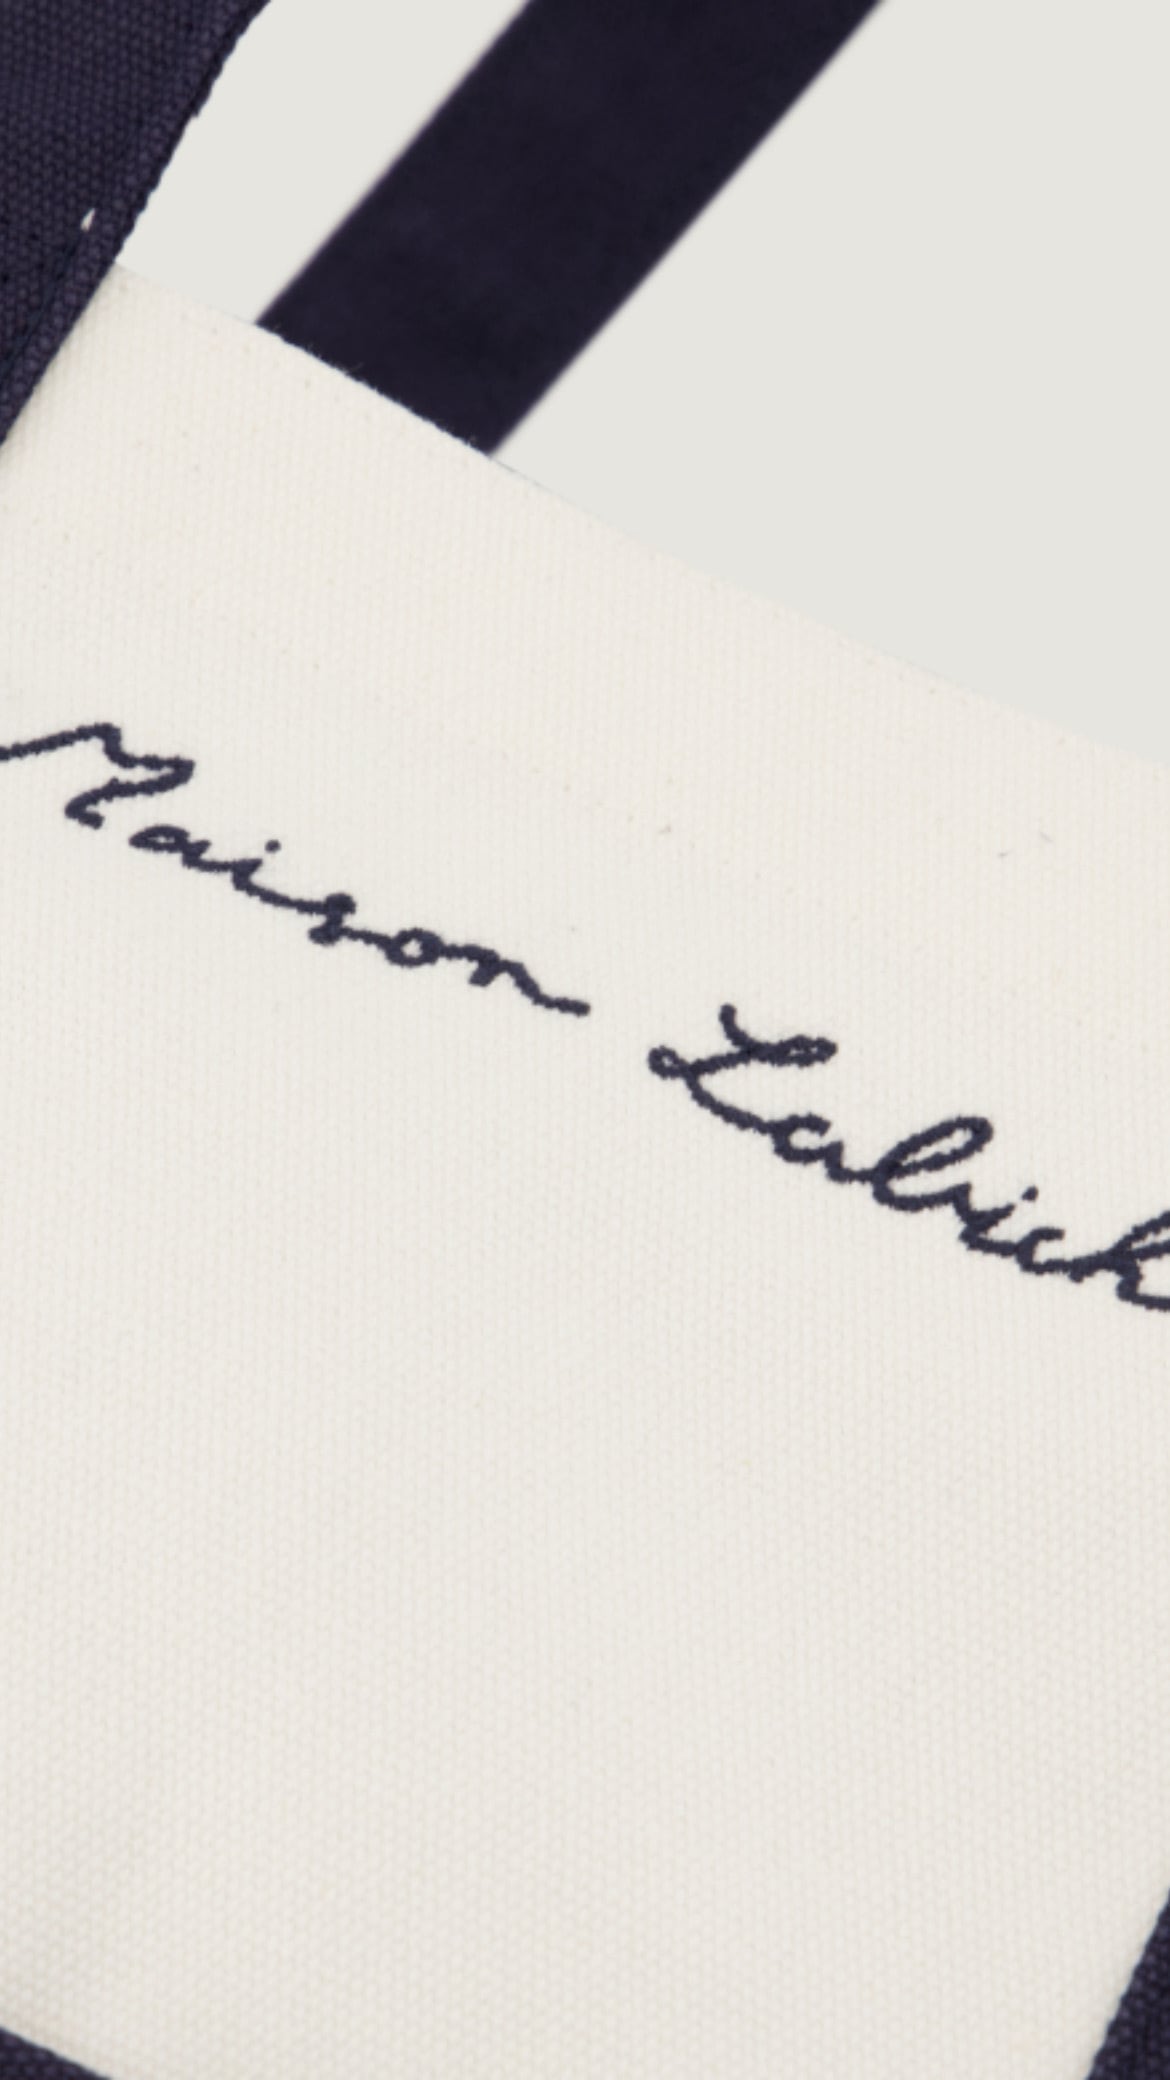 Maison Labich